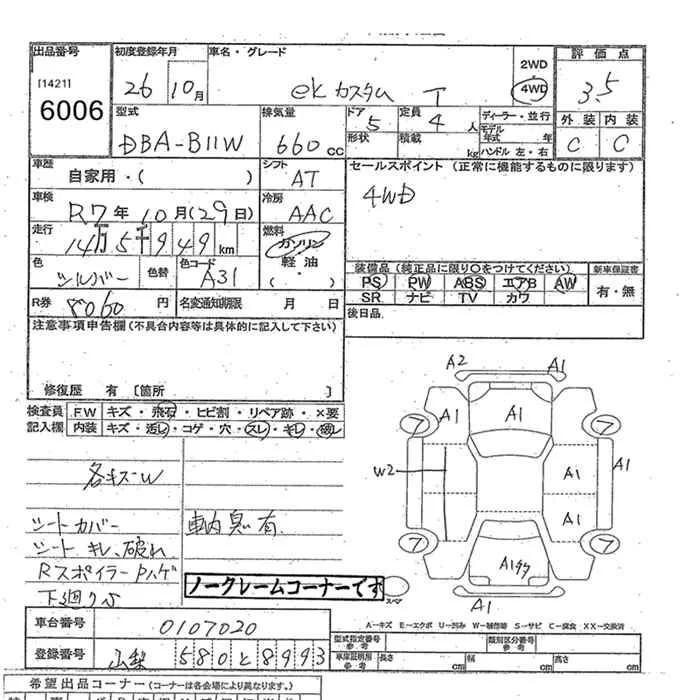 出品番号 初度登録年月 車名・グレード 評価点
[1421] 26 10月 ekカスタム T 2WD 4WD 3.5
6006
型式 排気量 ドア 5 定員 4人 ディーラー・並行 外装 内装
DBA-B11W 660cc 形状 積載 kg モデル年式 年 ハンドル 左・右 C C
車歴 シフト セールスポイント (正常に機能するものに限ります)
自家用・( ) AT 4WD
車検 冷房
R7年10月(29日) AAC
走行 燃料
14万5千949km ガソリン
色 色替 色コード 軽油 装備品 (純正品に限り○をつけてください) 新車保証書
シルバー A31 ( ・ ) PS PW ABS エアB AW 有・無
SR ナビ TV カワ
R券 8060円 名変通知期限 月 日 後日品
注意事項申告欄 (不具合内容等は具体的に記入して下さい)
修復歴 有 [箇所 ]
検査員 F.W キズ・飛石・ヒビ割・リペア跡・×要
記入欄 内装 キズ・汚レ・コゲ・穴・スレ・キレ・破レ
A2 A1
フ A1 A1 フ
W2 A1 A1
A1
フ フ
A1
A1
各キズ-W
シートカバー 車内臭い有
シート キレ、破れ
Rスポイラー Pハゲ
ノークレームコーナーです
スペア
A-キズ E-エクボ U-凹み W-補修跡 S-サビ C-腐食 XX-交換済
車台番号 0107020
型式指定番号 参考 類別区分番号 参考
登録番号 山梨 580 と 8993
車庫証明用 参考 長さ cm 幅 cm 高さ cm
希望出品コーナー (コーナーは各会場により異なります。)